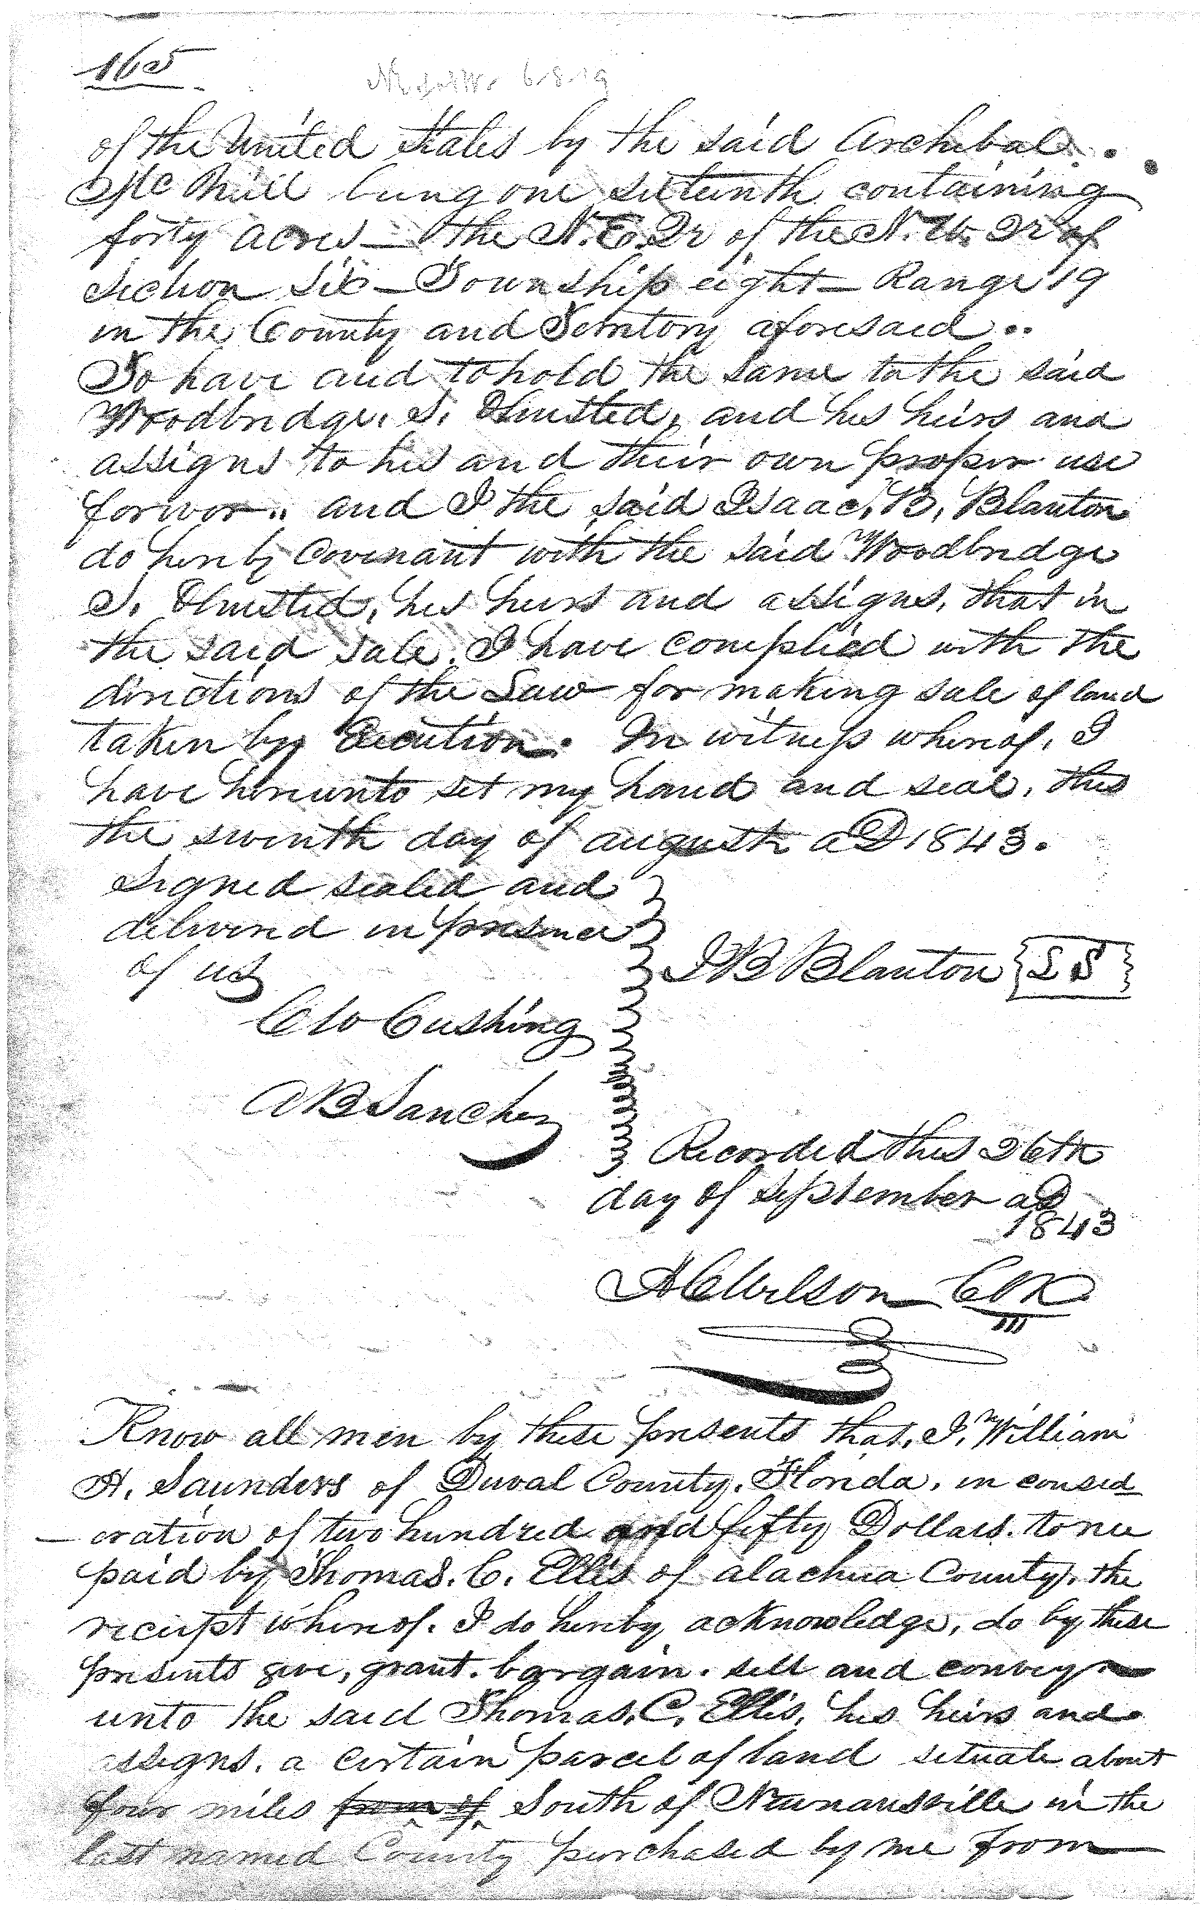 165
6-8-19
of the United States by the said Archibal..
Mc Neill being one sixteenth containing
forty acres — the N. E. Qr of the N. W. Qr of
Section Six — Township eight — Range 19
in the County and Territory aforesaid ..
To have and to hold the same to the said
Woodbridge. S. Olmsted, and his heirs and
assigns to his and their own proper use
forever .. and I the said Isaac. B. Blanton
do hereby Covenant with the said Woodbridge
S. Olmsted, his heirs and assigns, that in
the said sale. I have complied with the
directions of the Law for making sale of land
taken by Execution. In witness whereof, I
have hereunto set my hand and seal, this
the seventh day of august a D 1843.
Signed sealed and
delivered in presence
of us
I B Blanton {L S}
C W Cushing
A B Sanchez
Recorded this 26th
day of September a D
1843
H C Wilson Clk
Know all men by these presents that, I, William
H. Saunders of Duval County. Florida. in consid
— eration of two hundred and fifty Dollars. to me
paid by Thomas. C. Ellis of alachua County. the
receipt whereof. I do hereby acknowledge, do by these
presents give, grant. bargain. sell and convey
unto the said Thomas. C. Ellis, his heirs and
assigns. a certain parcel of land situate about
four miles from of South of Newnansville in the
last named County purchased by me from